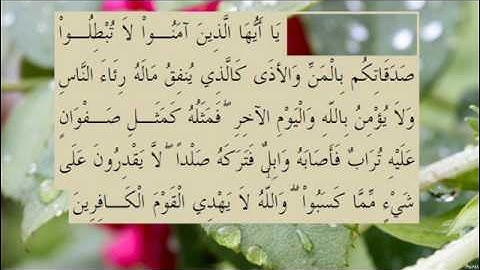 يَا أَيُّهَا الَّذِينَ آمَنُواْ لاَ تُبْطِلُواْ
صَدَقَاتِكُم بِالْمَنِّ وَالأذَى كَالَّذِي يُنفِقُ مَالَهُ رِئَاءَ النَّاسِ
وَلاَ يُؤْمِنُ بِاللّهِ وَالْيَوْمِ الآخِرِ ۖ فَمَثَلُهُ كَمَثَلِ صَفْوَانٍ
عَلَيْهِ تُرَابٌ فَأَصَابَهُ وَابِلٌ فَتَرَكَهُ صَلْداً ۖ لاَّ يَقْدِرُونَ عَلَى
شَيْءٍ مِّمَّا كَسَبُواْ ۗ وَاللّهُ لاَ يَهْدِي الْقَوْمَ الْكَافِرِينَ